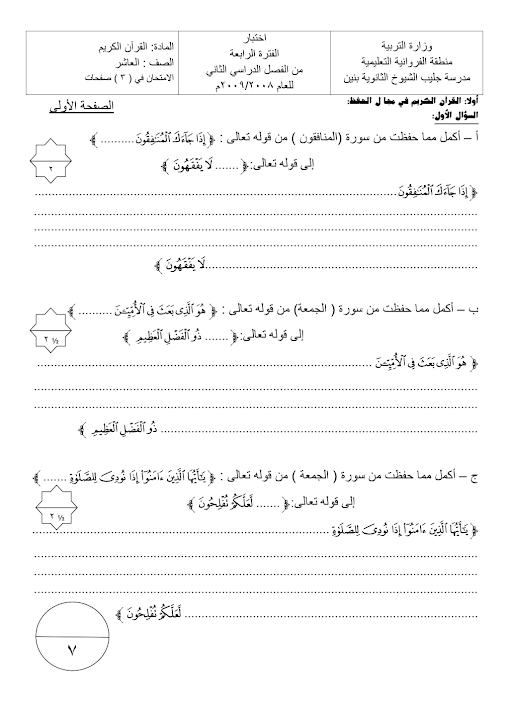 وزارة التربية
منطقة الفروانية التعليمية
مدرسة جليب الشيوخ الثانوية بنين
اختبار
الفترة الرابعة
من الفصل الدراسي الثاني
للعام ٢٠٠٩/٢٠٠٨م
المادة: القرآن الكريم
الصف : العاشر
الامتحان في ( ٣ ) صفحات
أولا: القرآن الكريم في مجا ل الحفظ:
الصفحة الأولى
السؤال الأول:
أ – أكمل مما حفظت من سورة (المنافقون ) من قوله تعالى : ﴿ إِذَا جَآءَكَ ٱلْمُنَـٰفِقُونَ.......... ﴾
إلى قوله تعالى:﴿ ....... لَا يَفْقَهُونَ ﴾
٢
﴿ إِذَا جَآءَكَ ٱلْمُنَـٰفِقُونَ..........
..........لَا يَفْقَهُونَ ﴾
ب – أكمل مما حفظت من سورة ( الجمعة) من قوله تعالى : ﴿ هُوَ ٱلَّذِى بَعَثَ فِى ٱلْأُمِّيِّـۧنَ .......... ﴾
إلى قوله تعالى:﴿ ....... ذُو ٱلْفَضْلِ ٱلْعَظِيمِ ﴾
٢ ½
﴿ هُوَ ٱلَّذِى بَعَثَ فِى ٱلْأُمِّيِّـۧنَ ..........
.......... ذُو ٱلْفَضْلِ ٱلْعَظِيمِ ﴾
ج – أكمل مما حفظت من سورة ( الجمعة ) من قوله تعالى : ﴿ يَـٰٓأَيُّهَا ٱلَّذِينَ ءَامَنُوٓا۟ إِذَا نُودِىَ لِلصَّلَوٰةِ ....... ﴾
إلى قوله تعالى:﴿ ....... لَعَلَّكُمْ تُفْلِحُونَ ﴾
٢ ½
﴿ يَـٰٓأَيُّهَا ٱلَّذِينَ ءَامَنُوٓا۟ إِذَا نُودِىَ لِلصَّلَوٰةِ ..........
.......... لَعَلَّكُمْ تُفْلِحُونَ ﴾
٧